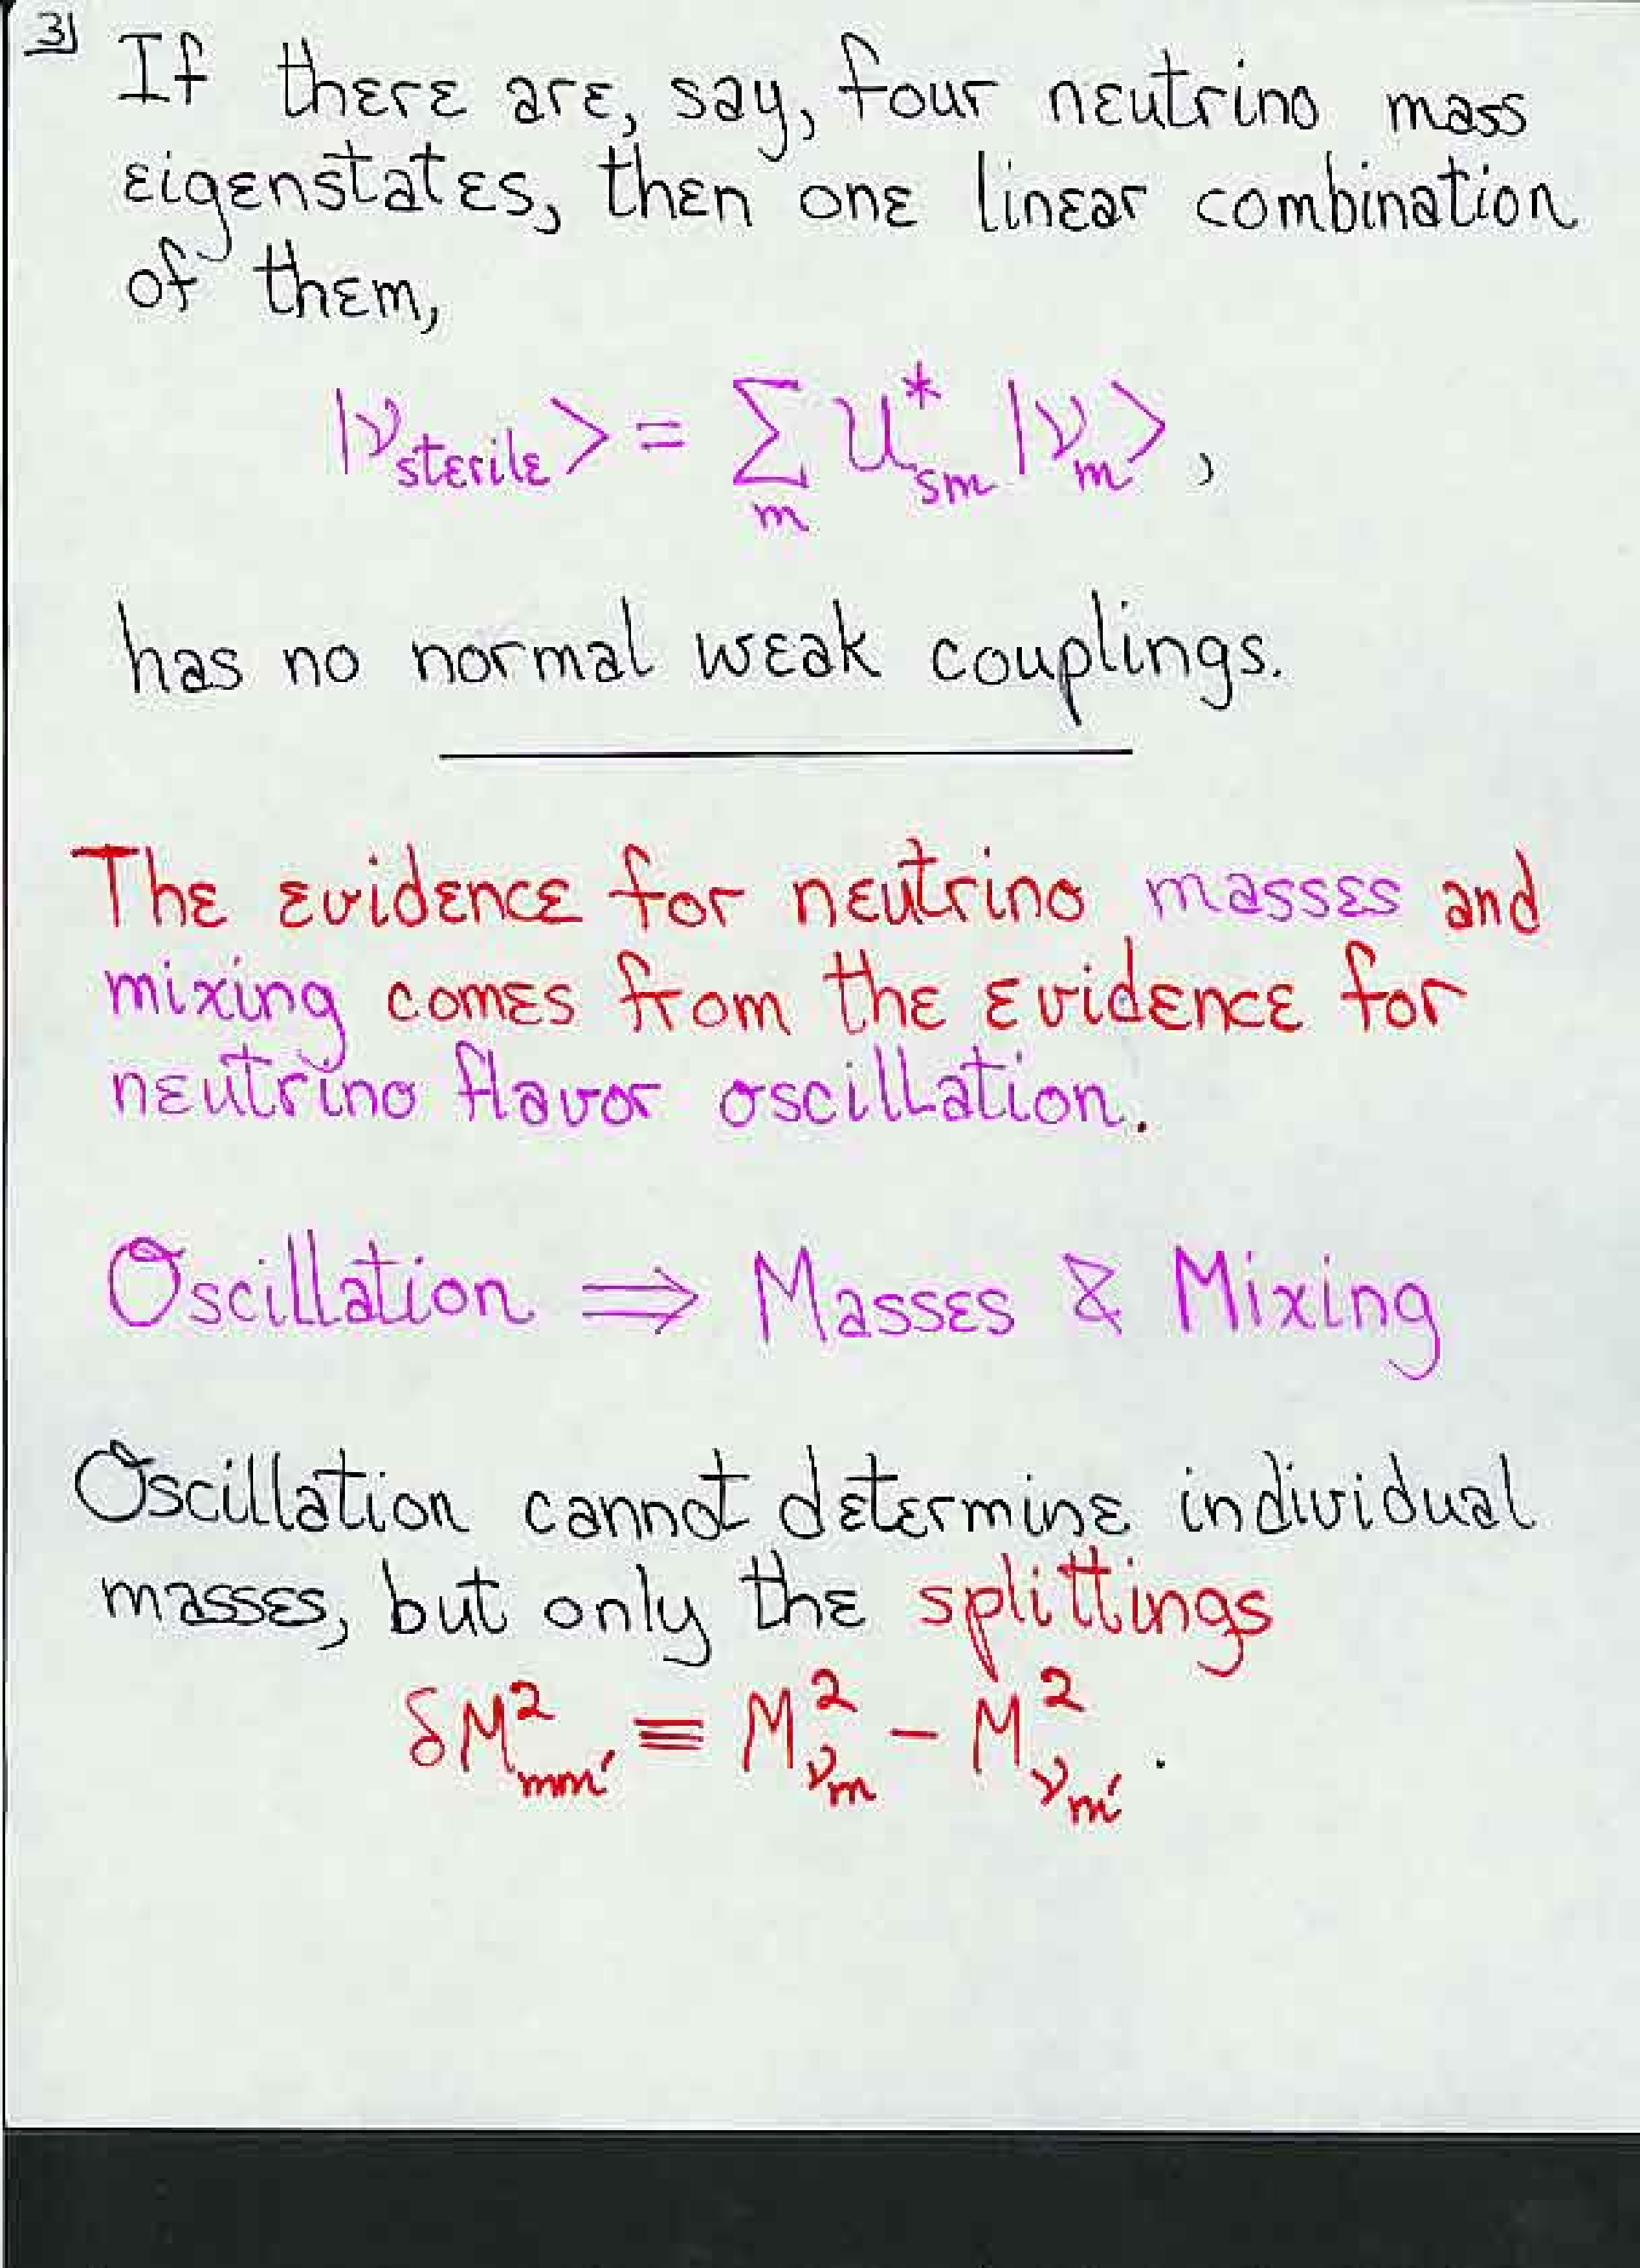 3
If there are, say, four neutrino mass
eigenstates, then one linear combination
of them,
|ν_sterile> = Σ_m U*_sm |ν_m> ,
has no normal weak couplings.
The evidence for neutrino masses and
mixing comes from the evidence for
neutrino flavor oscillation.
Oscillation ⇒ Masses & Mixing
Oscillation cannot determine individual
masses, but only the splittings
δM²_mm' ≡ M²_ν_m − M²_ν_m' .